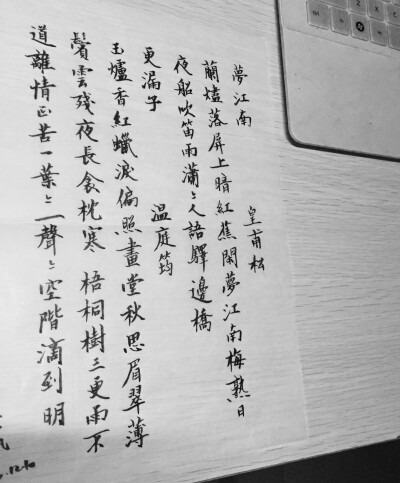 夢江南 皇甫松
蘭燼落屏上暗紅蕉閑夢江南梅熟日
夜船吹笛雨瀟〻人語驛邊橋
更漏子 温庭筠
玉爐香紅蠟淚偏照畫堂秋思眉翠薄
鬢雲殘夜長衾枕寒 梧桐樹三更雨不
道離情正苦一葉〻一聲〻空階滴到明
.12.10